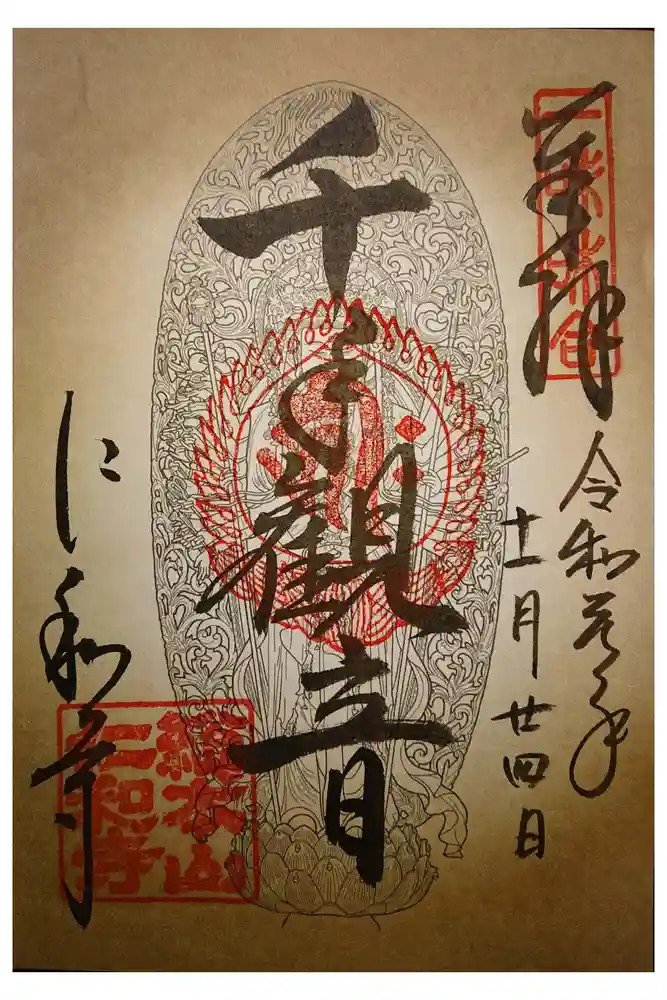 奉拝
令和元年
十一月廿四日
千手觀音
仁和寺
仁和寺